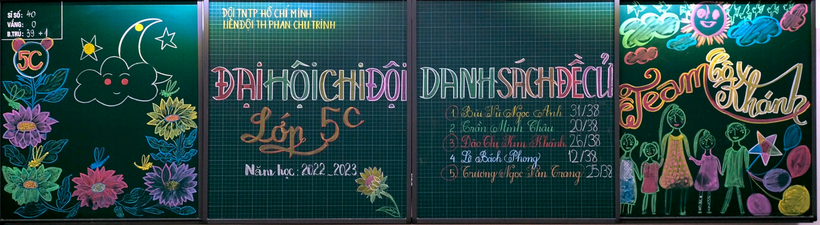 SĨ SỐ: 40
VẮNG: 0
B.TRÚ: 39 + 1
5C
ĐỘI TNTP HỒ CHÍ MINH
LIÊN ĐỘI TH PHAN CHU TRINH
ĐẠI HỘI CHI ĐỘI
Lớp 5C
Năm học: 2022_2023
DANH SÁCH ĐỀ CỬ
1 Bùi Vũ Ngọc Anh 31/38
2 Trần Minh Châu 20/38
3 Đào Chu Kim Khánh 26/38
4 Lê Bách Phong 12/38
5 Trương Ngọc Vân Trang 25/38
Team
Cây
Khánh